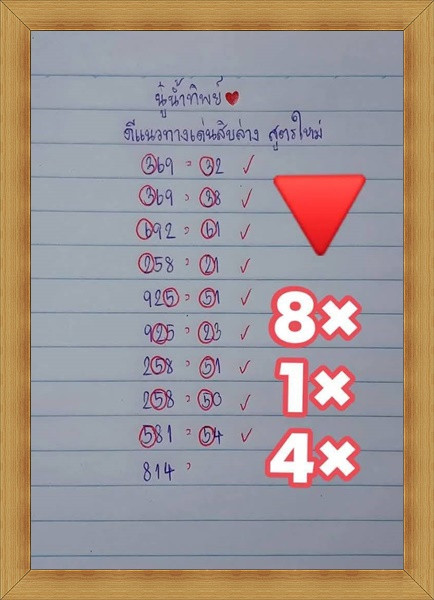 นู๋น้ำทิพย์
ดีแนวทางเด่นสิบล่าง สูตรใหม่
369 = 32 ✓
369 = 38 ✓
692 = 61 ✓
258 = 21 ✓
925 = 51 ✓
925 = 23 ✓
258 = 51 ✓
258 = 50 ✓
581 = 54 ✓
814 =
8×
1×
4×